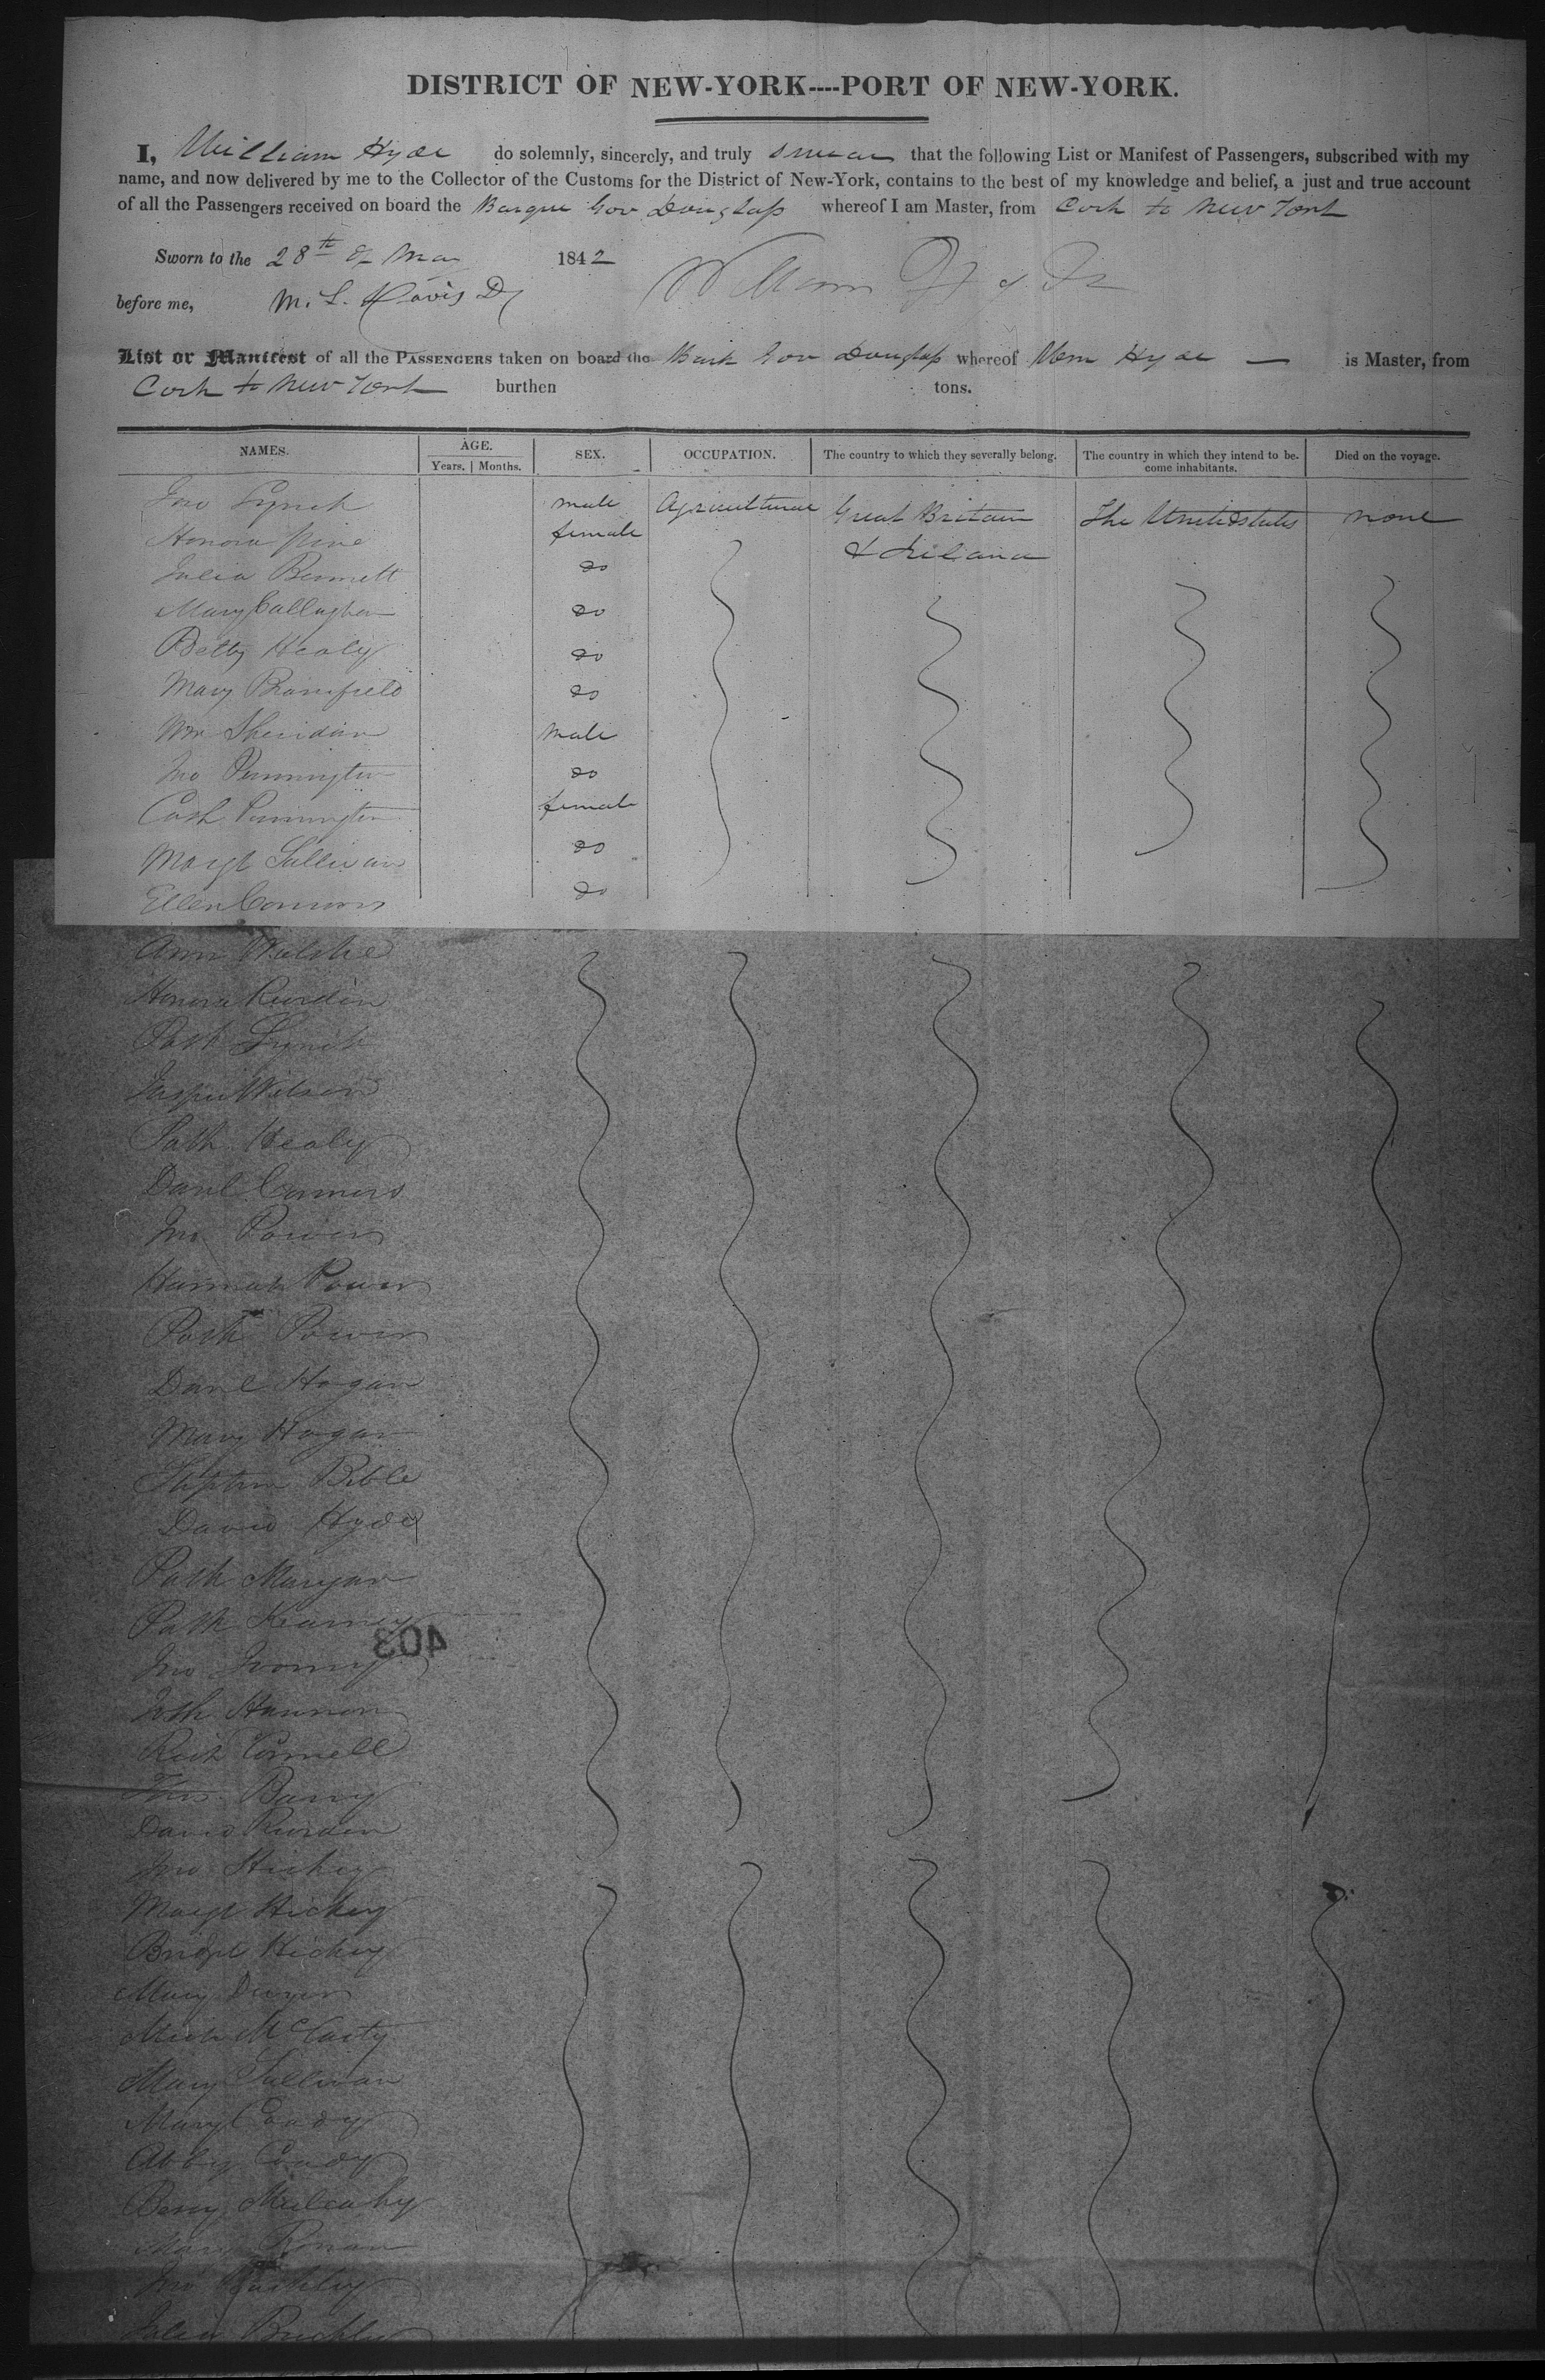 DISTRICT OF NEW-YORK----PORT OF NEW-YORK.
I, William Hyde do solemnly, sincerely, and truly swear that the following List or Manifest of Passengers, subscribed with my
name, and now delivered by me to the Collector of the Customs for the District of New-York, contains to the best of my knowledge and belief, a just and true account
of all the Passengers received on board the Barque Gov Douglass whereof I am Master, from Cork to New York
Sworn to the 28th of May 1842 William Hyde
before me, M. L. Davis
List or Manifest of all the PASSENGERS taken on board the Bark Gov Douglass whereof Wm Hyde — is Master, from
Cork to New York burthen tons.
NAMES. AGE. Years. | Months. SEX. OCCUPATION. The country to which they severally belong. The country in which they intend to be-come inhabitants. Died on the voyage.
Jno Lynch male Agricultural Great Britain The United States none
Honora female & Ireland
Julia Bennett do
Mary Callaghan do
Betty Healy do
Mary do
Wm Sheridan male
Jno Pennington do
Cath Pennington female
Margt Sullivan do
Ellen Connors do
Ann Walshe
Honora Riordan
Patk Lynch
Jasper Wilson
Patk Healy
Danl Connors
Jno Power
Hannah Power
Patk Power
Danl Hogan
Mary Hogan
Stephen Bible
David Hyde
Patk
Patk Kearney
403
Jno
Hannon
Rich Connell
Thos Barry
David Riordan
Jno Hickey
Margt Hickey
Bridgt Hickey
Mary Dwyer
Mich McCarty
Mary Sullivan
Mary Coady
Abby Coady
Mulcahy
Mary Ronan
Jno Buckley
Julia Buckley